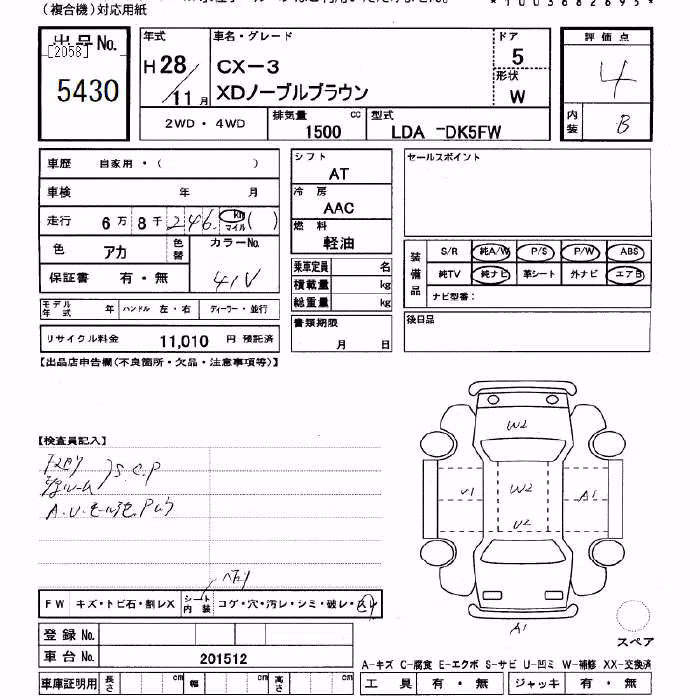 (複合機)対応用紙
出品No.
[2058]
5430
年式
H28/11月
車名・グレード
CX-3
XDノーブルブラウン
ドア
5
形状
W
評価点
4
内装
B
2WD・4WD
排気量
1500
cc
型式
LDA -DK5FW
車歴 自家用・( )
車検 年 月
走行 6万8千246 km マイル ( )
色 アカ 色替
カラーNo.
41V
保証書 有・無
モデル年式 年 ハンドル 左・右 ディーラー・並行
リサイクル料金 11,010 円 預託済
シフト
AT
冷房
AAC
燃料
軽油
乗車定員 名
積載量 kg
総重量 kg
書類期限
月 日
セールスポイント
装備品
S/R 純A/W P/S P/W ABS
純TV 純ナビ 革シート 外ナビ エアB
ナビ型番:
後日品
【出品店申告欄(不良箇所・欠品・注意事項等)】
【検査員記入】
S.C.P
A.U.モール
FW キズ・トビ石・割レX
シート内装
コゲ・穴・汚レ・シミ・破レ・スレ
登録No.
車台No. 201512
車庫証明用 長さ cm 幅 cm 高さ cm
W2
V1
W2
A1
U2
A1
スペア
A-キズ C-腐食 E-エクボ S-サビ U-凹ミ W-補修 XX-交換済
工具 有・無 ジャッキ 有・無